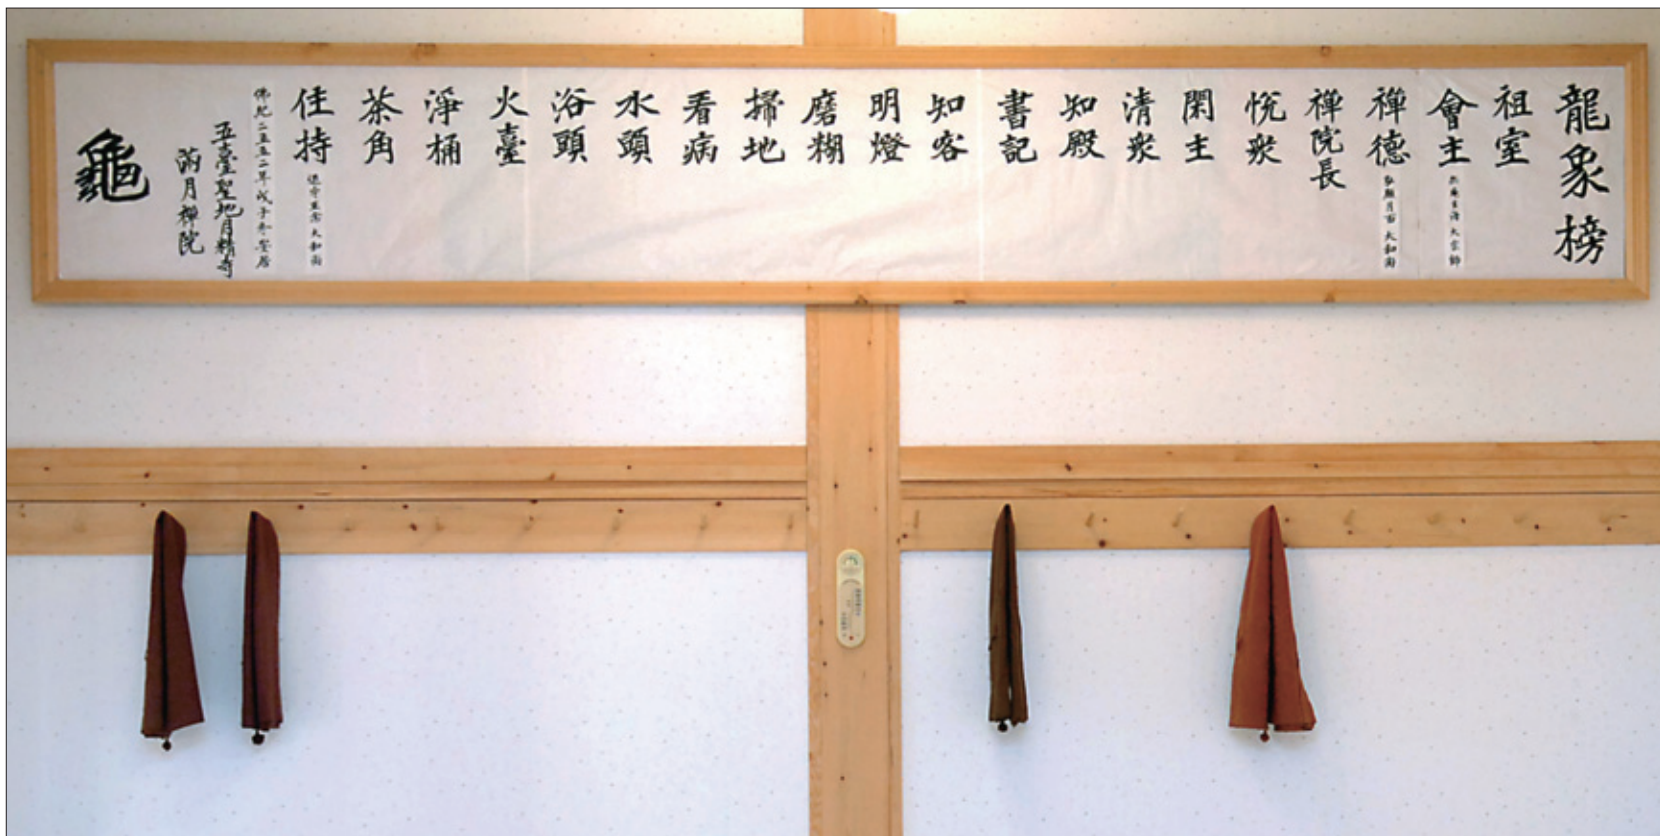 龍象榜
祖室
會主 大宗師
禪德 大和尚
禪院長
悅衆
閑主
清衆
知殿
書記
知客
明燈
磨糊
掃地
看病
水頭
浴頭
火臺
淨桶
茶角
住持 大和尚
佛紀二五五二年戊子冬安居
五臺聖地月精寺
滿月禪院
龜